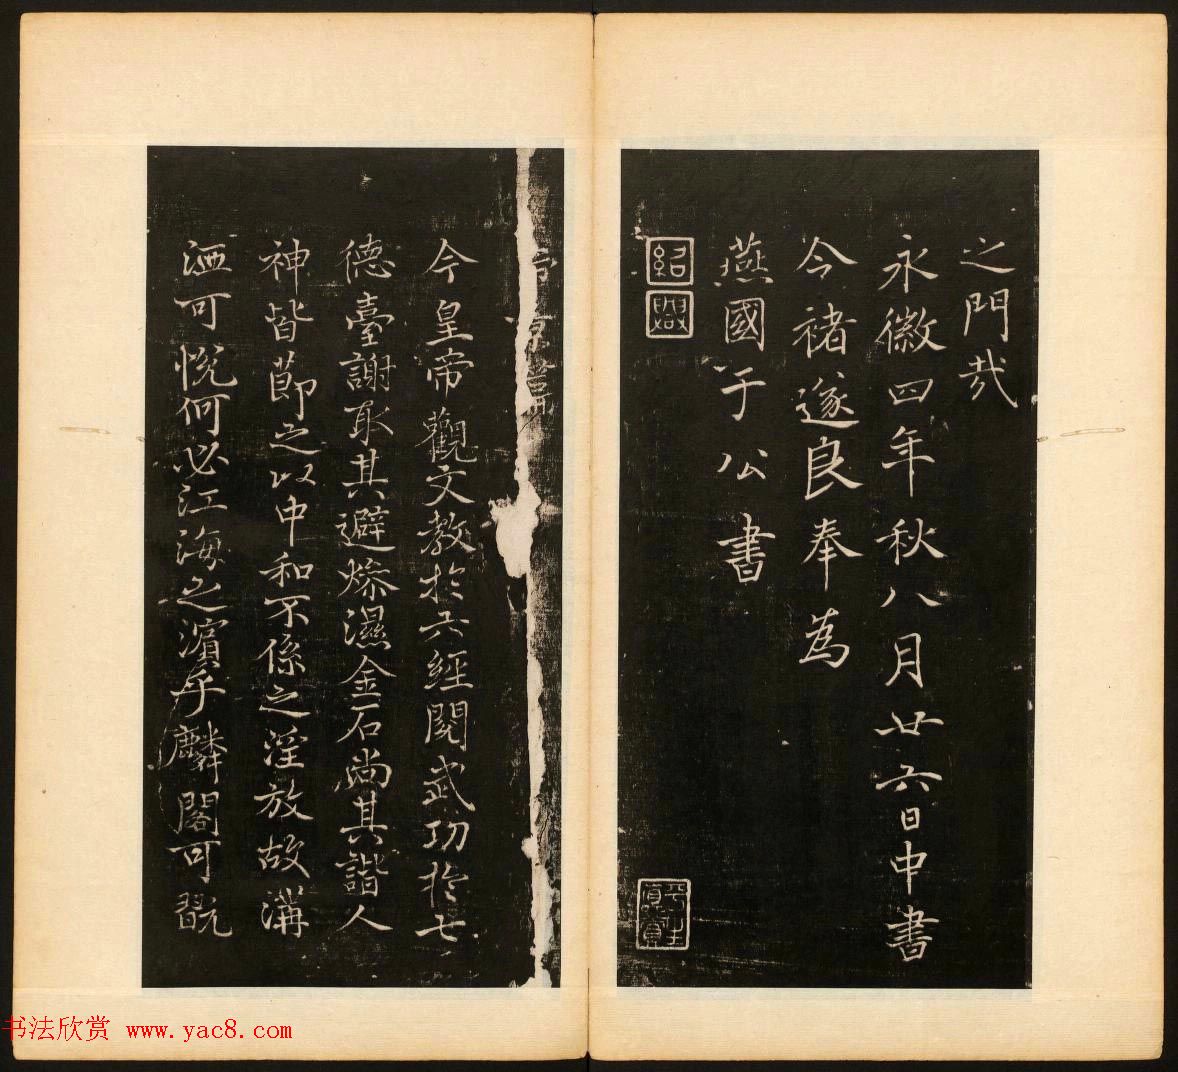 之門哉
永徽四年秋八月廿六日中書
今褚遂良奉為
燕國于公書
今皇帝觀文教於六經閱武功於七
德臺謝取其避燥濕金石尚其諧人
神皆節之以中和不係之淫放故溝
洒可悅何必江海之濵乎麟閣可翫
书法欣赏 www.yac8.com